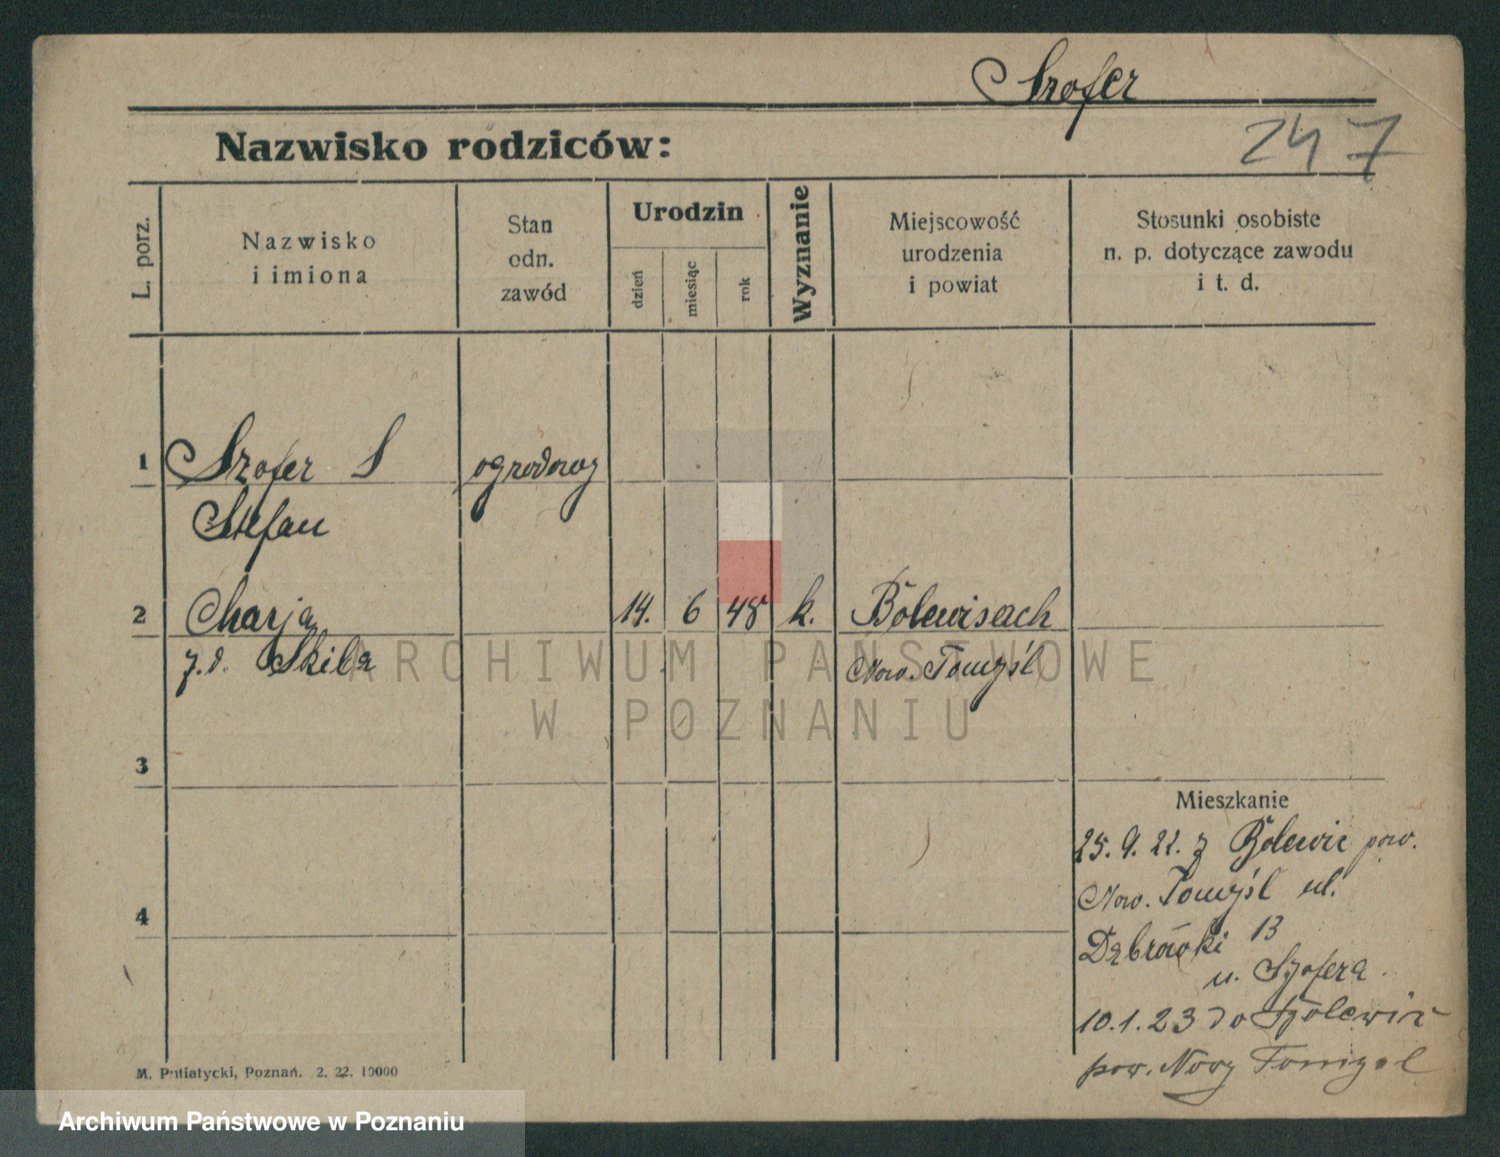 Szofer
Nazwisko rodziców:
247
L. porz.
Nazwisko
i imiona
Stan
odn.
zawód
Urodzin
dzień
miesiąc
rok
Wyznanie
Miejscowość
urodzenia
i powiat
Stosunki osobiste
n. p. dotyczące zawodu
i t. d.
1 Szofer S ogrodowy
Stefan
2 Marja 14. 6 48 k. Bolewisach
z.d. Skiba Now. Tomyśl
3
Mieszkanie
25. 9. 22. z Bolewic pow.
Now. Tomyśl ul.
4
Dąbrówki 13
u. Szofera
10.1.23 do Bolewic
pow. Nowy Tomyśl
M. Putiatycki, Poznań. 2. 22. 10000
ARCHIWUM PAŃSTWOWE
W POZNANIU
Archiwum Państwowe w Poznaniu